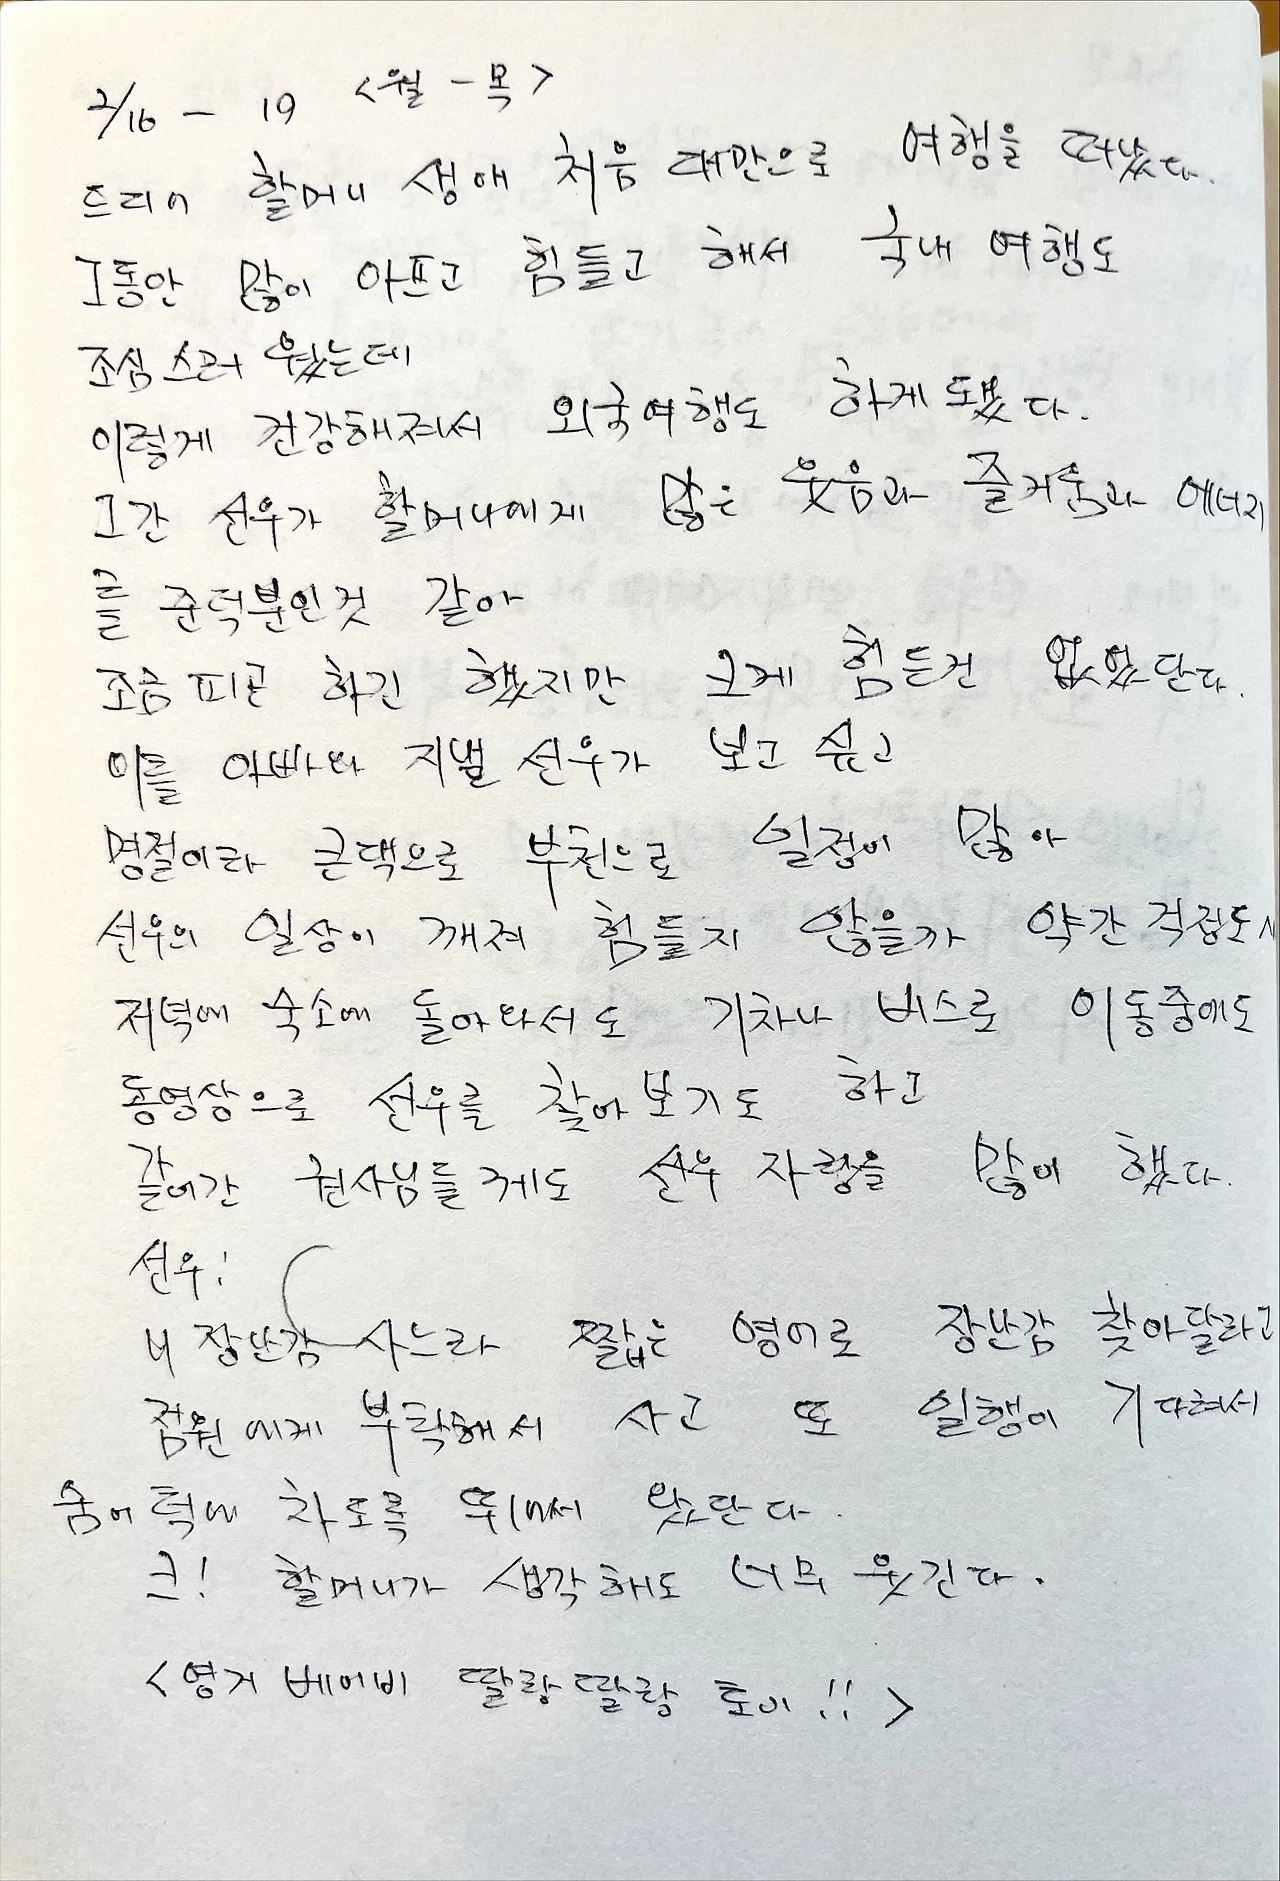 2/16 - 19 <월 - 목>
드디어 할머니 생애 처음 대만으로 여행을 떠났다.
그동안 많이 아프고 힘들고 해서 국내 여행도
조심스러 웠는데
이렇게 건강해져서 외국여행도 하게 됐다.
그간 선우가 할머니에게 많은 웃음과 즐거움과 에너지
를 준덕분인것 같아
조금 피곤 하긴 했지만 크게 힘든건 없었단다.
이틀 아빠와 지낼 선우가 보고 싶고
명절이라 큰댁으로 부천으로 일정이 많아
선우의 일상이 깨져 힘들지 않을가 약간 걱정도
저녁에 숙소에 돌아와서도 기차나 버스로 이동중에도
동영상으로 선우를 찾아보기도 하고
같이간 권사님들께도 선우 자랑을 많이 했다.
선우!
너 장난감 사느라 짧은 영어로 장난감 찾아달라고
점원에게 부탁해서 사고 또 일행이 기다려서
숨이 턱에 차도록 뛰어서 왔단다.
크! 할머니가 생각해도 너무 웃긴다.
<영거 베이비 딸랑딸랑 토이!!>